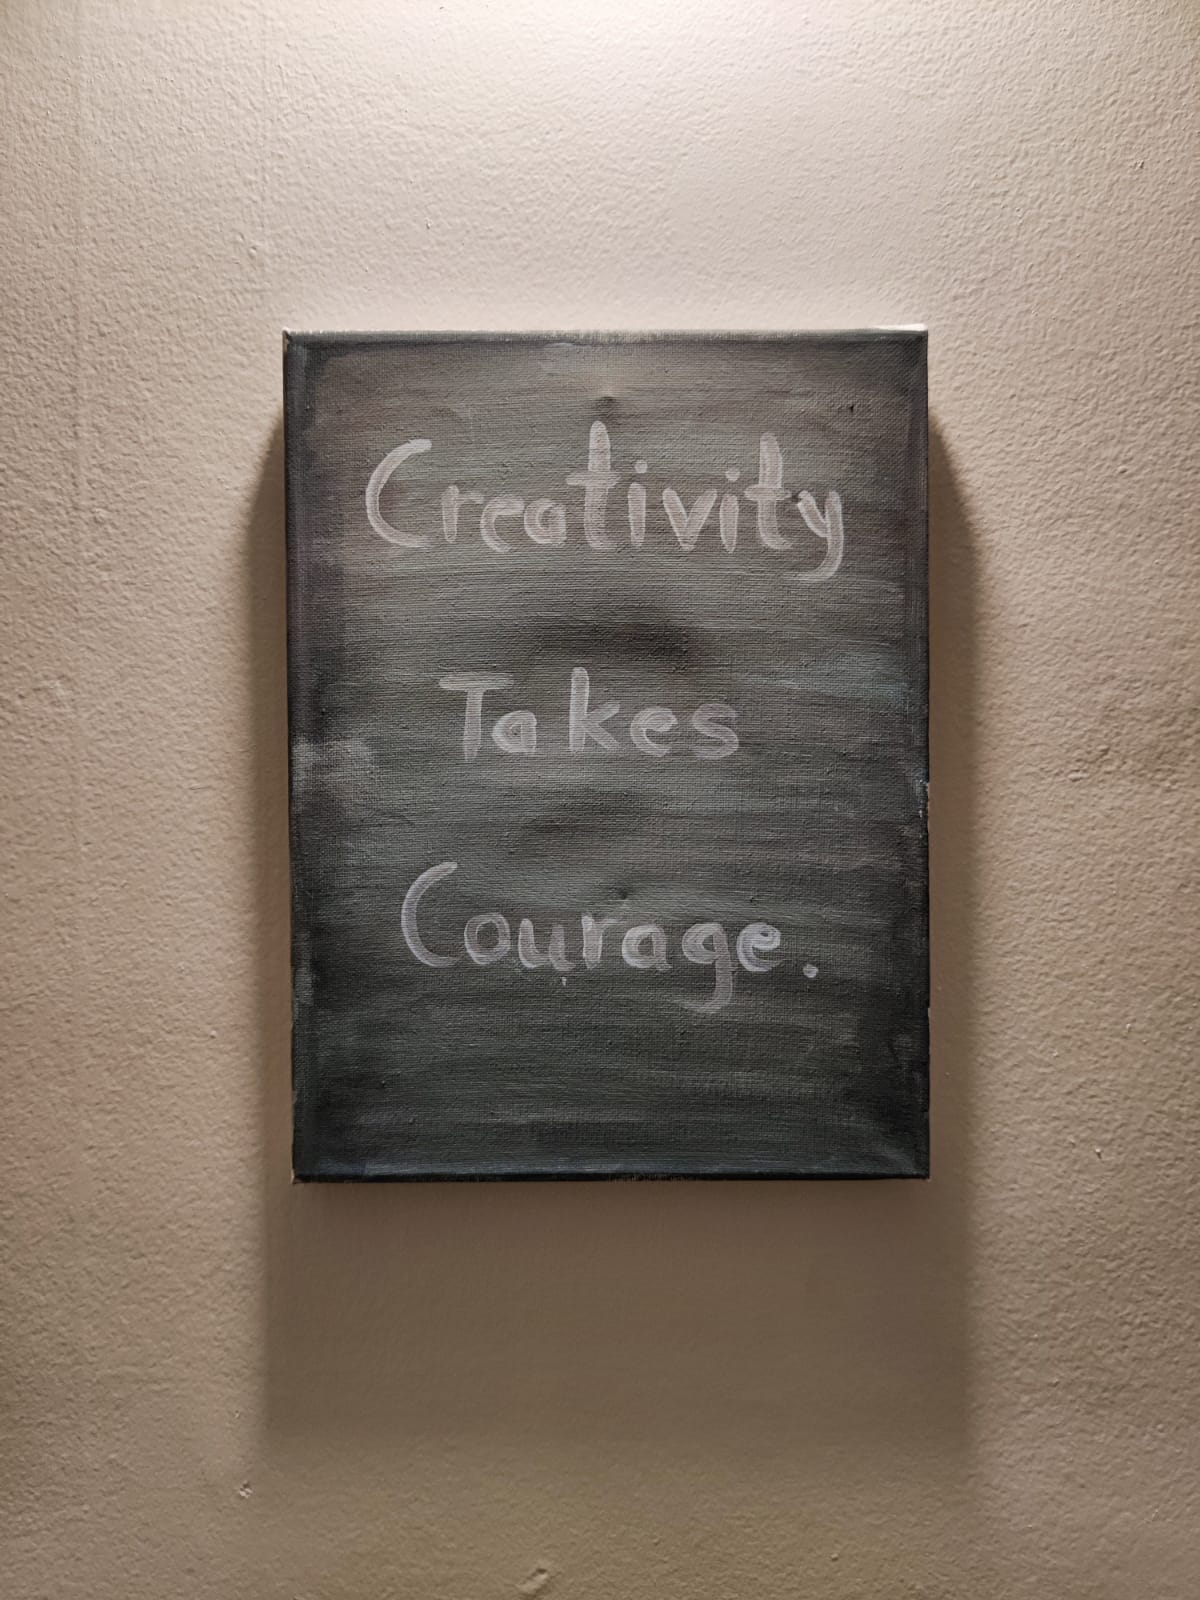 Creativity
Takes
Courage.